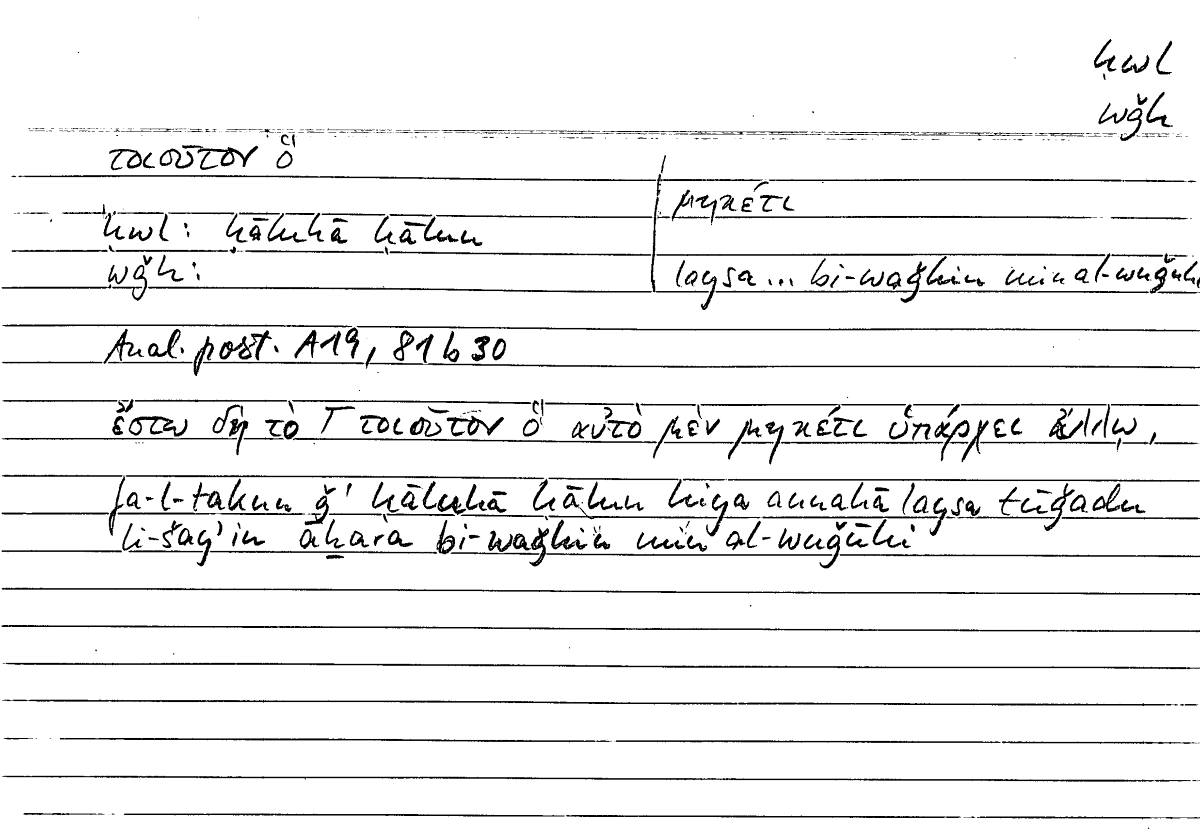 ḥwl
wǧh
τοιοῦτον ὅ
ḥwl: ḥāluhā ḥālun
wǧh:
μηκέτι
laysa... bi-waǧhin min al-wuǧūhi
Anal. post. A19, 81 b 30
ἔστω δὴ τὸ Γ τοιοῦτον ὅ αὐτὸ μὲν μηκέτι ὑπάρχει ἄλλῳ,
fa-l-takun ǧ' ḥāluhā ḥālun hiya annahā laysa tūǧadu
li-šay'in āḫara bi-waǧhin min al-wuǧūhi